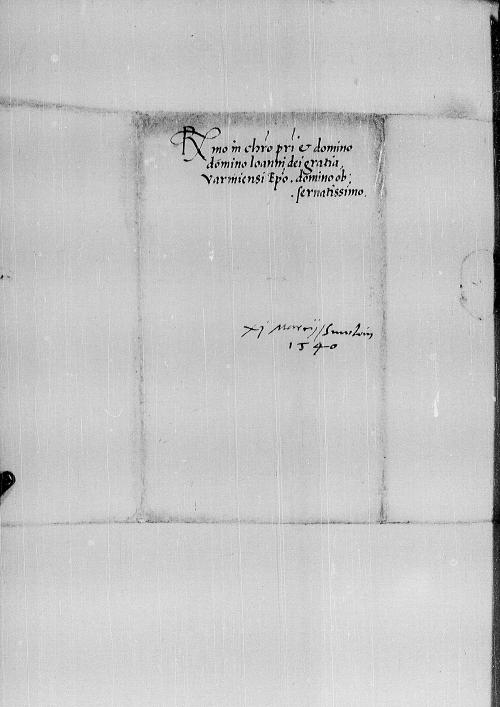 Rmo in chro pri & domino
domino Ioanni dei gratia
varmiensi Epo. domino ob
servatissimo.
xj Marcij
1540